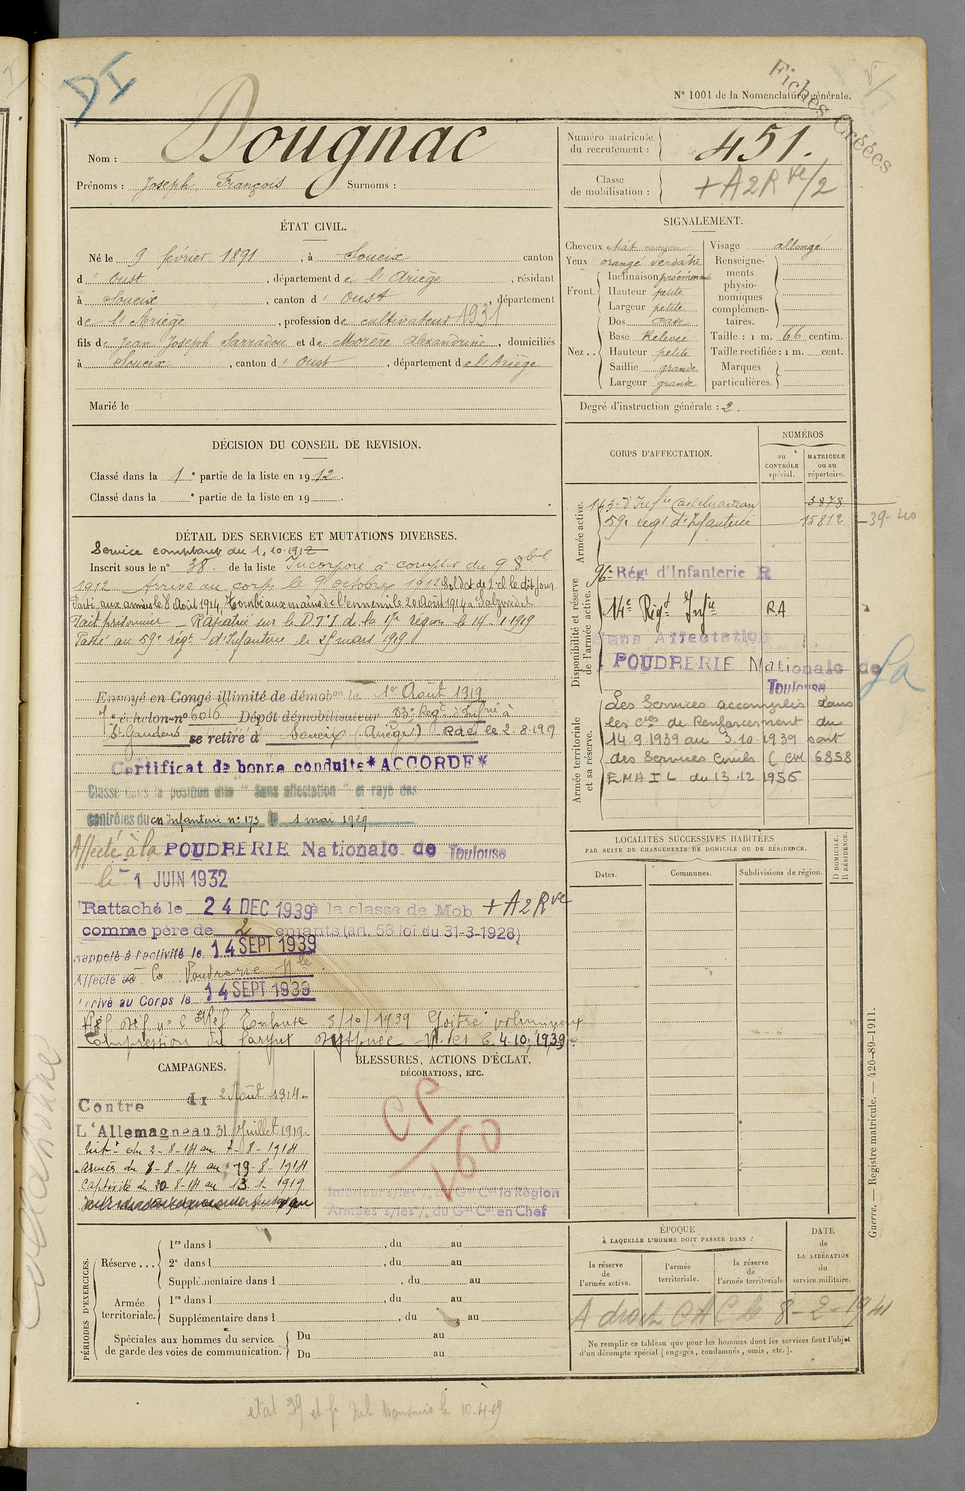 DI
Fiches Créées
N° 1001 de la Nomenclature générale.
Nom : Dougnac
Prénoms : Joseph, François Surnoms :
Numéro matricule du recrutement : 451.
Classe de mobilisation : + A2R ve/2
ÉTAT CIVIL.
Né le 9 février 1891, à Soueix canton
d' Oust, département de l'Ariège, résidant
à Soueix, canton d' Oust, département
de l'Ariège, profession de cultivateur 1931
fils de Jean Joseph Sarradou et de Morère Alexandrine, domiciliés
à Soueix, canton d' Oust, département de l'Ariège
Marié le
SIGNALEMENT.
Cheveux chât moyen
Yeux orangé verdâtre
Front. Inclinaison
Hauteur petite
Largeur petite
Nez.. Dos cave
Base Relevée
Hauteur petite
Saillie grande
Largeur grande
Visage allongé
Renseignements physionomiques complémentaires.
Taille : 1 m. 66 centim.
Taille rectifiée : 1 m. cent.
Marques particulières.
Degré d'instruction générale : 2.
DÉCISION DU CONSEIL DE REVISION.
Classé dans la 1e partie de la liste en 1912.
Classé dans la e partie de la liste en 19 .
DÉTAIL DES SERVICES ET MUTATIONS DIVERSES.
Service comptant du 1.10.1912
Inscrit sous le n° 38. de la liste Incorporé à compter du 9 8bre
1912 Arrivé au corps le 9 octobre 1912 Sol de 2e cl le dit jour
Parti aux armées le 8 Août 1914, Tombé aux mains de l'ennemi le 20 Août 1914 à
Fait prisonnier — Rapatrié sur le D.T.I de la 17e région le 14-1-1919
Passé au 59e régt d'Infanterie le mars 1919
Envoyé en Congé illimité de démob le 1er Août 1919
échelon n° 6016 Dépôt démobilisateur 83e Régt d'Infrie à
St Gaudens se retire à Soueix (Ariège) le 2-8-1919
Certificat de bonne conduite *ACCORDÉ*
Classé dans la position dite " Sans affectation " et rayé des
contrôles du cn Infanterie n° 173 le 1 mai 1929
Affecté à la POUDRERIE Nationale de Toulouse
le 1 JUIN 1932
Rattaché le 24 DEC 1939 à la classe de Mob + A2Rve
comme père de 2 enfants (art. 58 loi du 31-3-1928)
Rappelé à l'activité le 14 SEPT 1939
Affecté à la Poudrerie Nle
Arrivé au Corps le 14 SEPT 1939
Réf Déf n° 2 Toulouse 3/10/1939 Goitre volumineux
Compression du larynx 4.10.1939
CORPS D'AFFECTATION.
NUMÉROS
au CONTRÔLE spécial.
MATRICULE ou au répertoire.
Armée active.
143e d'Infie Castelnaudary 3878
59e régt d'Infanterie 15812 39-40
Disponibilité et réserve de l'armée active.
96e Régt d'Infanterie R
14e Régt Infie RA
Sans Affectation
POUDRERIE Nationale de Toulouse
Sa
Armée territoriale et sa réserve.
Les Services accomplis dans
les Cies de Renforcement du
14.9.1939 au 3.10.1939 sont
des Services Civils ( CM 6858
EMA I L du 13.12.1956
LOCALITÉS SUCCESSIVES HABITÉES
PAR SUITE DE CHANGEMENTS DE DOMICILE OU DE RÉSIDENCE.
Dates.
Communes.
Subdivisions de région.
D DOMICILE. R RÉSIDENCE.
CAMPAGNES.
Contre du 2 Août 1914
L'Allemagne au 31 Juillet 1919
Intr du 2-8-14 au 7-8-1914
armées du 8-8-14 au 19-8-1914
Captivité du 20-8-14 au 13.1.1919
BLESSURES, ACTIONS D'ÉCLAT,
DÉCORATIONS, ETC.
CP
160
Intérieur s/les % du Gal Ct la Région
Armées s/les % du Gal Ct en Chef
PÉRIODES D'EXERCICES.
Réserve... 1re dans l , du au
2e dans l , du au
Supplémentaire dans l , du au
Armée territoriale. 1re dans l , du au
Supplémentaire dans l , du au
Spéciales aux hommes du service de garde des voies de communication. Du au
Du au
ÉPOQUE
À LAQUELLE L'HOMME DOIT PASSER DANS :
la réserve de l'armée active.
l'armée territoriale.
la réserve de l'armée territoriale
DATE de LA LIBÉRATION du service militaire.
A droit CAC le 8-2-1941
Ne remplir ce tableau que pour les hommes dont les services font l'objet
d'un décompte spécial ( engagés, condamnés, omis, etc.).
Guerre. — Registre matricule. — 426-89-1911.
etat 39 et le 10.4.19